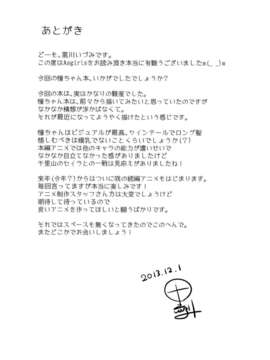 あとがき
どーも。寛川いづみです。
この度はAngirisをお読み頂き本当に有難うございましたm(_ _)m
今回の憧ちゃん本、いかがでしたでしょうか？
今回の本は、実はかなりの難産でした。
憧ちゃん本は、前々から描いてみたいと思っていたのですが
なかなか構想が浮かばなくて。
それが最近になってようやく描けたという感じです。
憧ちゃんはビジュアルが最高。ツインテールでロング髪
惜しむべきは横乳でないことくらいでしょうか(？)
本編アニメでは他のキャラの能力が濃いせいで
なかなか目立てなかった感がありましたけど
千里山のセイラとの一戦は見応えがありましたね！
来年(今年？)からはついに咲の続編アニメもはじまります。
毎回言ってますが本当に楽しみです！
アニメ制作スタッフさん方は大変でしょうけど
期待して待っているので
良いアニメを作ってほしいと願うばかりです。
それではスペースも無くなってきたのでこのへんで。
またどこかでお会いしましょう！
2013.12.1